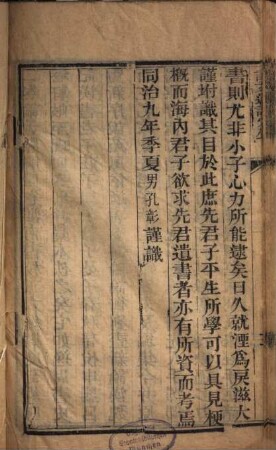 書則尤非小子心力所能逮矣日久就湮爲戾滋大
謹坿識其目於此庶先君子平生所學可以具見梗
概而海內君子欲求先君遺書者亦有所資而考焉
同治九年季夏男孔彰謹識